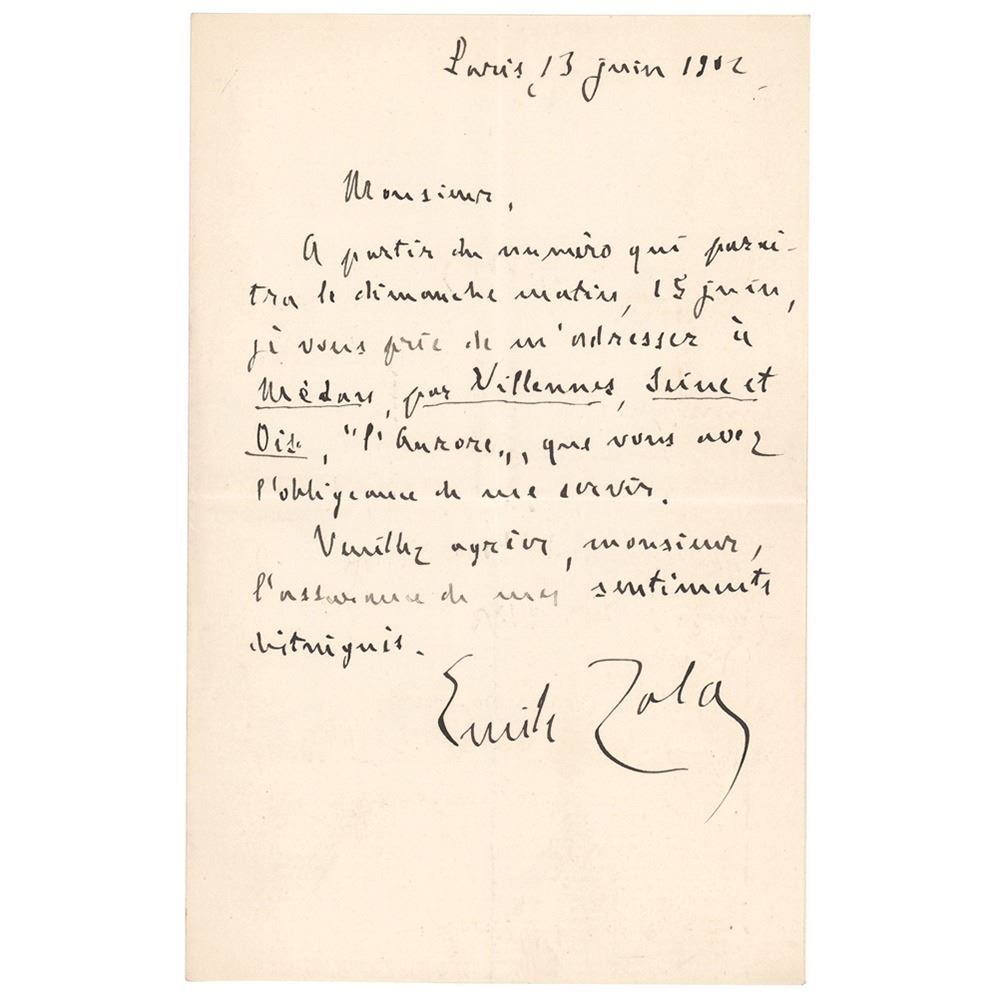 Paris, 13 juin 1902
Monsieur,
A partir du numéro qui paraî-
tra le dimanche matin, 15 juin,
je vous prie de m'adresser à
Médan, par Villennes, Seine et
Oise, "l'Aurore", que vous avez
l'obligeance de me servir.
Veuillez agréer, monsieur,
l'assurance de mes sentiments
distingués.
Emile Zola